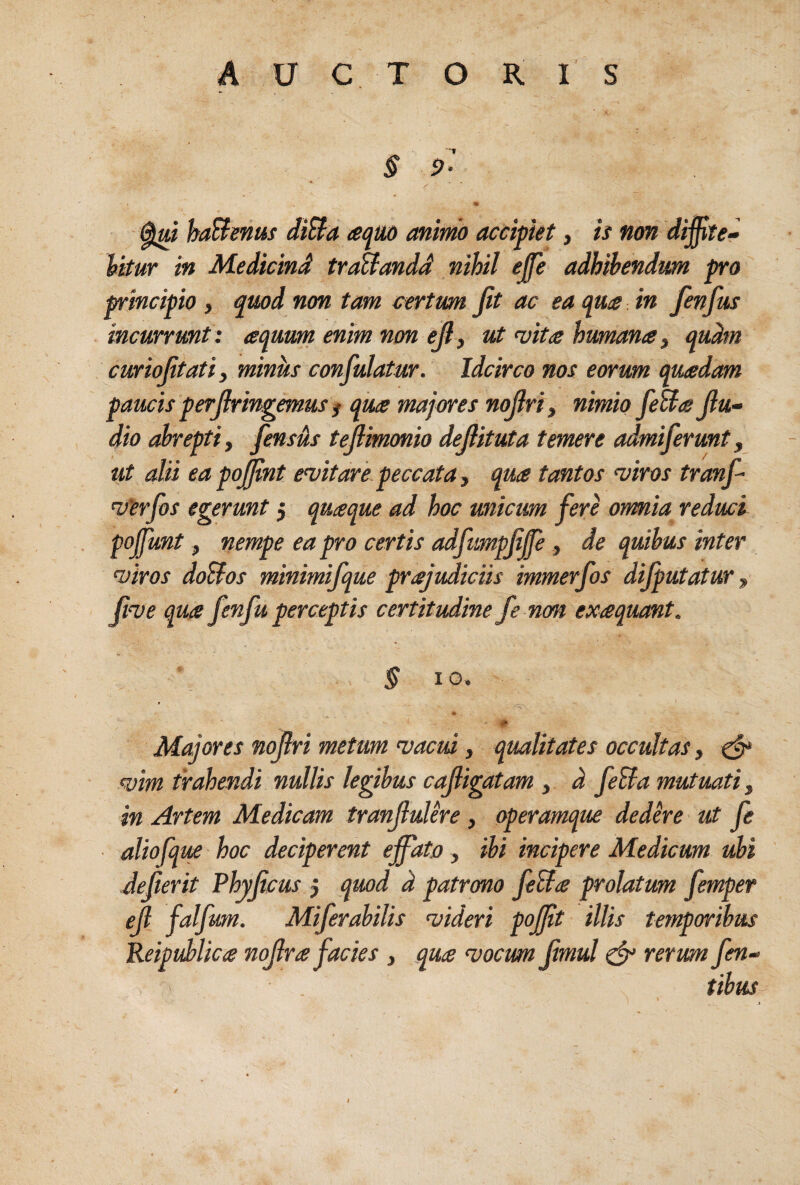 AUCTORIS
§ 9.
Qui hactenus dicta æquo animo accipiet, is non diffite-
bitur in Medicinâ tractandâ nihil esse adhibendum pro
principio, quod non tam certum sit ac ea quæ in sensus
incurrunt: æquum enim non est, ut vitæ humanæ, quàm
curiositati, minùs consulatur. Idcirco nos eorum quædam
paucis perstringemus, quæ majores nostri, nimio sectæ stu-
dio abrepti, sensûs testimonio destituta temere admiserunt,
ut alii ea possint evitare peccata, quæ tantos viros trans-
versos egerunt; quæque ad hoc unicum ferè omnia reduci
possunt, nempe ea pro certis adsumpsisse, de quibus inter
viros doctos minimisque præjudiciis immersos disputatur,
sive quæ sensu perceptis certitudine se non exæquant.
§ 10.
Majores nostri metum vacui, qualitates occultas, &
vim trahendi nullis legibus castigatam, à secta mutuati,
in Artem Medicam transtulêre, operamque dedêre ut se
aliosque hoc deciperent effato, ibi incipere Medicum ubi
desierit Physicus; quod à patrono sectæ prolatum semper
est falsum. Miserabilis videri possit illis temporibus
Reipublicæ nostræ facies, quæ vocum simul & rerum sen-
tibus